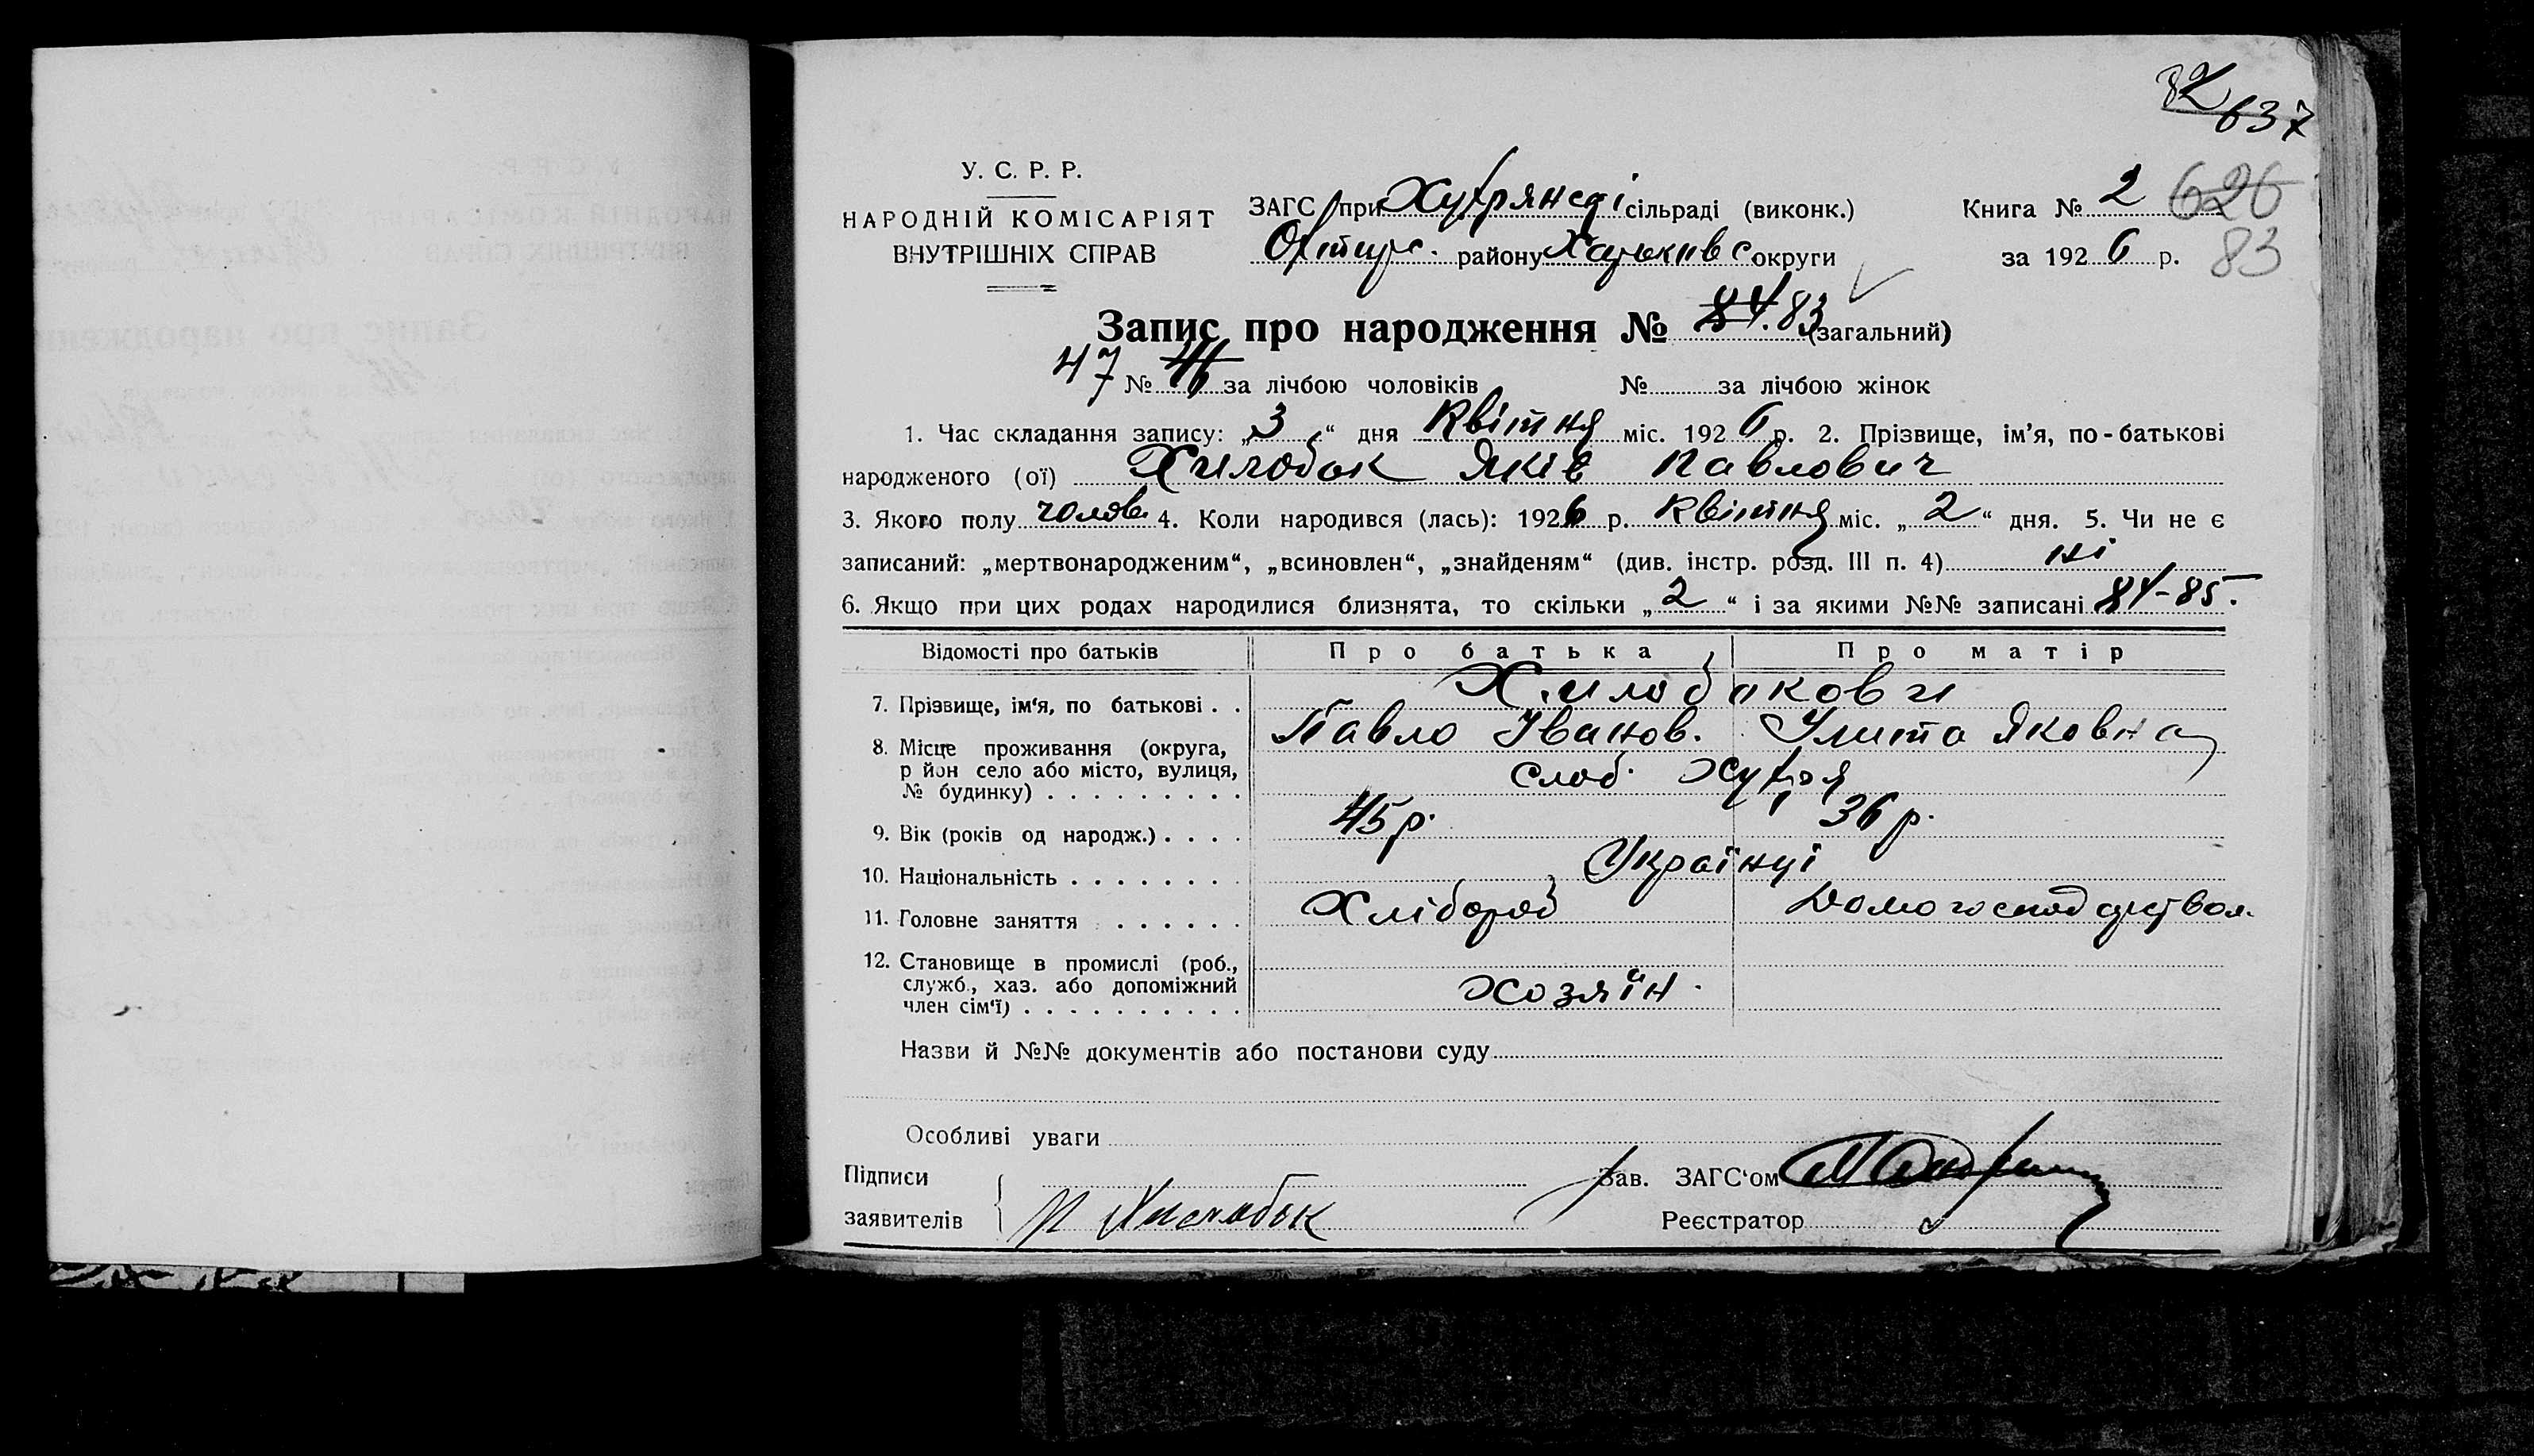 82 637
У. С. Р. Р.
НАРОДНІЙ КОМІСАРІЯТ
ВНУТРІШНІХ СПРАВ
ЗАГС при сільраді (виконк.)
Охтирс. району Харьківс округи
Книга № 2 626
за 1926 р. 83
Запис про народження № 84. 83 (загальний)
47 № 46 за лічбою чоловіків № за лічбою жінок
1. Час складання запису: „3“ дня Квітня міс. 1926 р. 2. Прізвище, ім’я, по-батькові
народженого (ої) Хилобок Яків Павлович
3. Якого полу чолов. 4. Коли народився (лась): 1926 р. Квітня міс. „2“ дня. 5. Чи не є
записаний: „мертвонародженим“, „всиновлен“, „знайденям“ (див. інстр. розд. III п. 4) ні
6. Якщо при цих родах народилися близнята, то скільки „2“ і за якими №№ записані 84-85.
Відомості про батьків Про батька Про матір
7. Прізвище, ім‘я, по батькові . . Хилобокови
Павло Іванов. Улита Яковна
8. Місце проживання (округа,
р йон село або місто, вулиця, слоб. Хухря
№ будинку) . . . . . . . . .
9. Вік (років од народж.) . . . . 45 р. 36 р.
10. Національність . . . . . . . Українці
11. Головне заняття . . . . . . Хлібороб
12. Становище в промислі (роб.,
служб., хаз. або допоміжний хозяїн.
член сім‘ї) . . . . . . . . . .
Назви й №№ документів або постанови суду
Особливі уваги
Підписи Зав. ЗАГС‘ом
заявителів П Хилобок Реєстратор